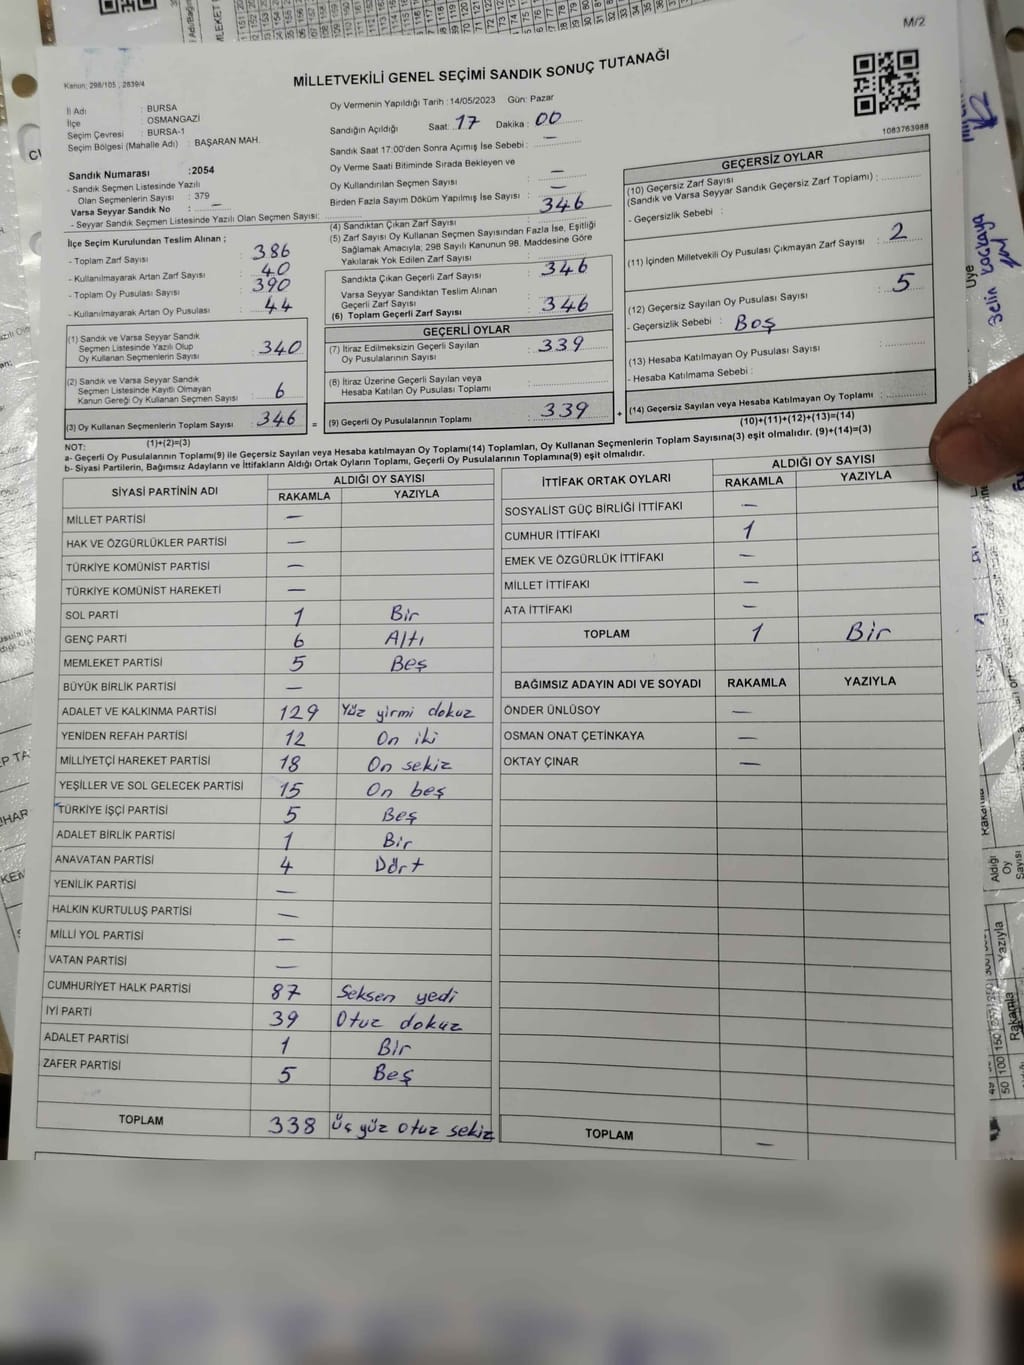 M/2
Kanun: 298/105 , 2839/4
MİLLETVEKİLİ GENEL SEÇİMİ SANDIK SONUÇ TUTANAĞI
İl Adı : BURSA
İlçe : OSMANGAZİ
Seçim Çevresi : BURSA-1
Seçim Bölgesi (Mahalle Adı) : BAŞARAN MAH.
Oy Vermenin Yapıldığı Tarih :14/05/2023 Gün: Pazar
Sandığın Açıldığı Saat: 17 Dakika : 00
Sandık Saat 17:00'den Sonra Açımış İse Sebebi : —
Oy Verme Saati Bitiminde Sırada Bekleyen ve
Oy Kullandırılan Seçmen Sayısı : —
Birden Fazla Sayım Döküm Yapılmış İse Sayısı : —
1083763988
Sandık Numarası :2054
- Sandık Seçmen Listesinde Yazılı
Olan Seçmenlerin Sayısı : 379
Varsa Seyyar Sandık No : —
- Seyyar Sandık Seçmen Listesinde Yazılı Olan Seçmen Sayısı:
İlçe Seçim Kurulundan Teslim Alınan ;
- Toplam Zarf Sayısı : 386
- Kullanılmayarak Artan Zarf Sayısı : 40
- Toplam Oy Pusulası Sayısı : 390
- Kullanılmayarak Artan Oy Pusulası : 44
(1) Sandık ve Varsa Seyyar Sandık
Seçmen Listesinde Yazılı Olup
Oy Kullanan Seçmenlerin Sayısı : 340
(2) Sandık ve Varsa Seyyar Sandık
Seçmen Listesinde Kayıtlı Olmayan
Kanun Gereği Oy Kullanan Seçmen Sayısı : 6
(3) Oy Kullanan Seçmenlerin Toplam Sayısı : 346
(1)+(2)=(3)
(4) Sandıktan Çıkan Zarf Sayısı : 346
(5) Zarf Sayısı Oy Kullanan Seçmen Sayısından Fazla İse, Eşitliği
Sağlamak Amacıyla; 298 Sayılı Kanunun 98. Maddesine Göre
Yakılarak Yok Edilen Zarf Sayısı :
Sandıkta Çıkan Geçerli Zarf Sayısı : 346
Varsa Seyyar Sandıktan Teslim Alınan
Geçerli Zarf Sayısı :
(6) Toplam Geçerli Zarf Sayısı : 346
GEÇERLİ OYLAR
(7) İtiraz Edilmeksizin Geçerli Sayılan
Oy Pusulalarının Sayısı : 339
(8) İtiraz Üzerine Geçerli Sayılan veya
Hesaba Katılan Oy Pusulası Toplamı :
= (9) Geçerli Oy Pusulalarının Toplamı : 339 +
GEÇERSİZ OYLAR
(10) Geçersiz Zarf Sayısı
(Sandık ve Varsa Seyyar Sandık Geçersiz Zarf Toplamı) :
- Geçersizlik Sebebi :
(11) İçinden Milletvekili Oy Pusulası Çıkmayan Zarf Sayısı : 2
(12) Geçersiz Sayılan Oy Pusulası Sayısı : 5
- Geçersizlik Sebebi : Boş
(13) Hesaba Katılmayan Oy Pusulası Sayısı :
- Hesaba Katılmama Sebebi :
(14) Geçersiz Sayılan veya Hesaba Katılmayan Oy Toplamı :
(10)+(11)+(12)+(13)=(14)
NOT:
a- Geçerli Oy Pusulalarının Toplamı(9) ile Geçersiz Sayılan veya Hesaba katılmayan Oy Toplamı(14) Toplamları, Oy Kullanan Seçmenlerin Toplam Sayısına(3) eşit olmalıdır. (9)+(14)=(3)
b- Siyasi Partilerin, Bağımsız Adayların ve İttifakların Aldığı Ortak Oyların Toplamı, Geçerli Oy Pusulalarının Toplamına(9) eşit olmalıdır.
SİYASİ PARTİNİN ADI ALDIĞI OY SAYISI
RAKAMLA YAZIYLA
MİLLET PARTİSİ —
HAK VE ÖZGÜRLÜKLER PARTİSİ —
TÜRKİYE KOMÜNİST PARTİSİ —
TÜRKİYE KOMÜNİST HAREKETİ —
SOL PARTİ 1 Bir
GENÇ PARTİ 6 Altı
MEMLEKET PARTİSİ 5 Beş
BÜYÜK BİRLİK PARTİSİ —
ADALET VE KALKINMA PARTİSİ 129 Yüz yirmi dokuz
YENİDEN REFAH PARTİSİ 12 On iki
MİLLİYETÇİ HAREKET PARTİSİ 18 On sekiz
YEŞİLLER VE SOL GELECEK PARTİSİ 15 On beş
TÜRKİYE İŞÇİ PARTİSİ 5 Beş
ADALET BİRLİK PARTİSİ 1 Bir
ANAVATAN PARTİSİ 4 Dört
YENİLİK PARTİSİ —
HALKIN KURTULUŞ PARTİSİ —
MİLLİ YOL PARTİSİ —
VATAN PARTİSİ —
CUMHURİYET HALK PARTİSİ 87 Seksen yedi
İYİ PARTİ 39 Otuz dokuz
ADALET PARTİSİ 1 Bir
ZAFER PARTİSİ 5 Beş
TOPLAM 338 üç yüz otuz sekiz
İTTİFAK ORTAK OYLARI ALDIĞI OY SAYISI
RAKAMLA YAZIYLA
SOSYALİST GÜÇ BİRLİĞİ İTTİFAKI —
CUMHUR İTTİFAKI 1
EMEK VE ÖZGÜRLÜK İTTİFAKI —
MİLLET İTTİFAKI —
ATA İTTİFAKI —
TOPLAM 1 Bir
BAĞIMSIZ ADAYIN ADI VE SOYADI RAKAMLA YAZIYLA
ÖNDER ÜNLÜSOY —
OSMAN ONAT ÇETİNKAYA —
OKTAY ÇINAR —
TOPLAM —
Üye
Aldığı
Oy
Sayısı
Rakamla
Yazıyla
50 100 150